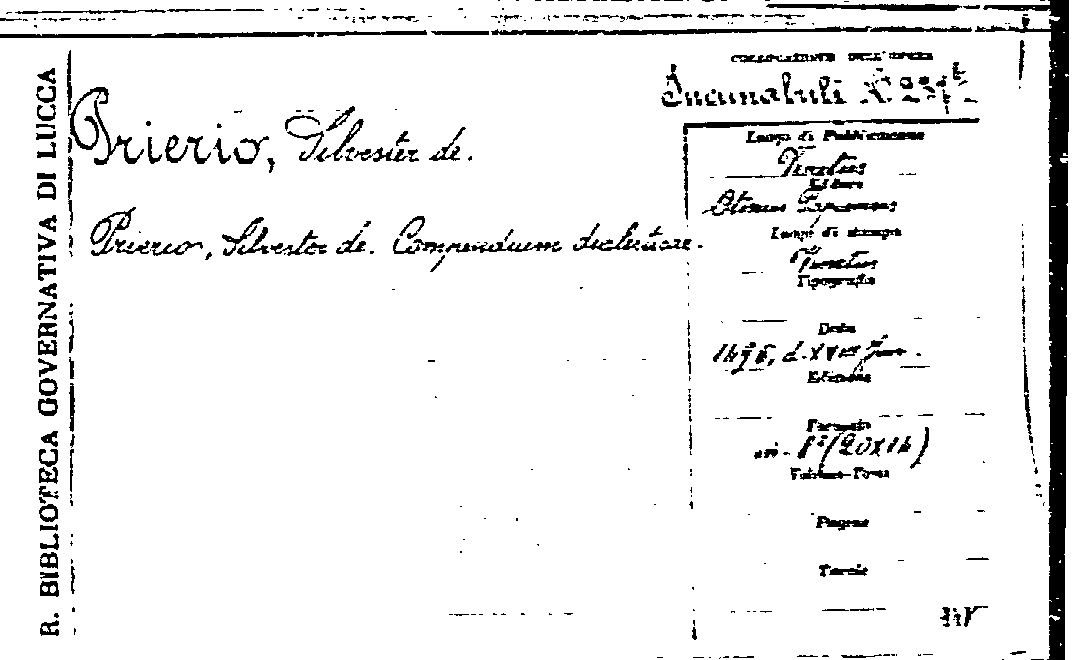 R. BIBLIOTECA GOVERNATIVA DI LUCCA
Prierio, Silvester de.
Prierio, Silvester de. Compendium dialecticae.
COLLOCAZIONE DELL'OPERA
Incunabuli N. 237
Luogo di Pubblicazione
Venetiis
Editore
Luogo di stampa
Venetiis
Tipografia
Data
1496, d. XVII Jun.
Edizione
Formato
in-8° (20x14)
Volume-Tomo
Pagine
Tavole